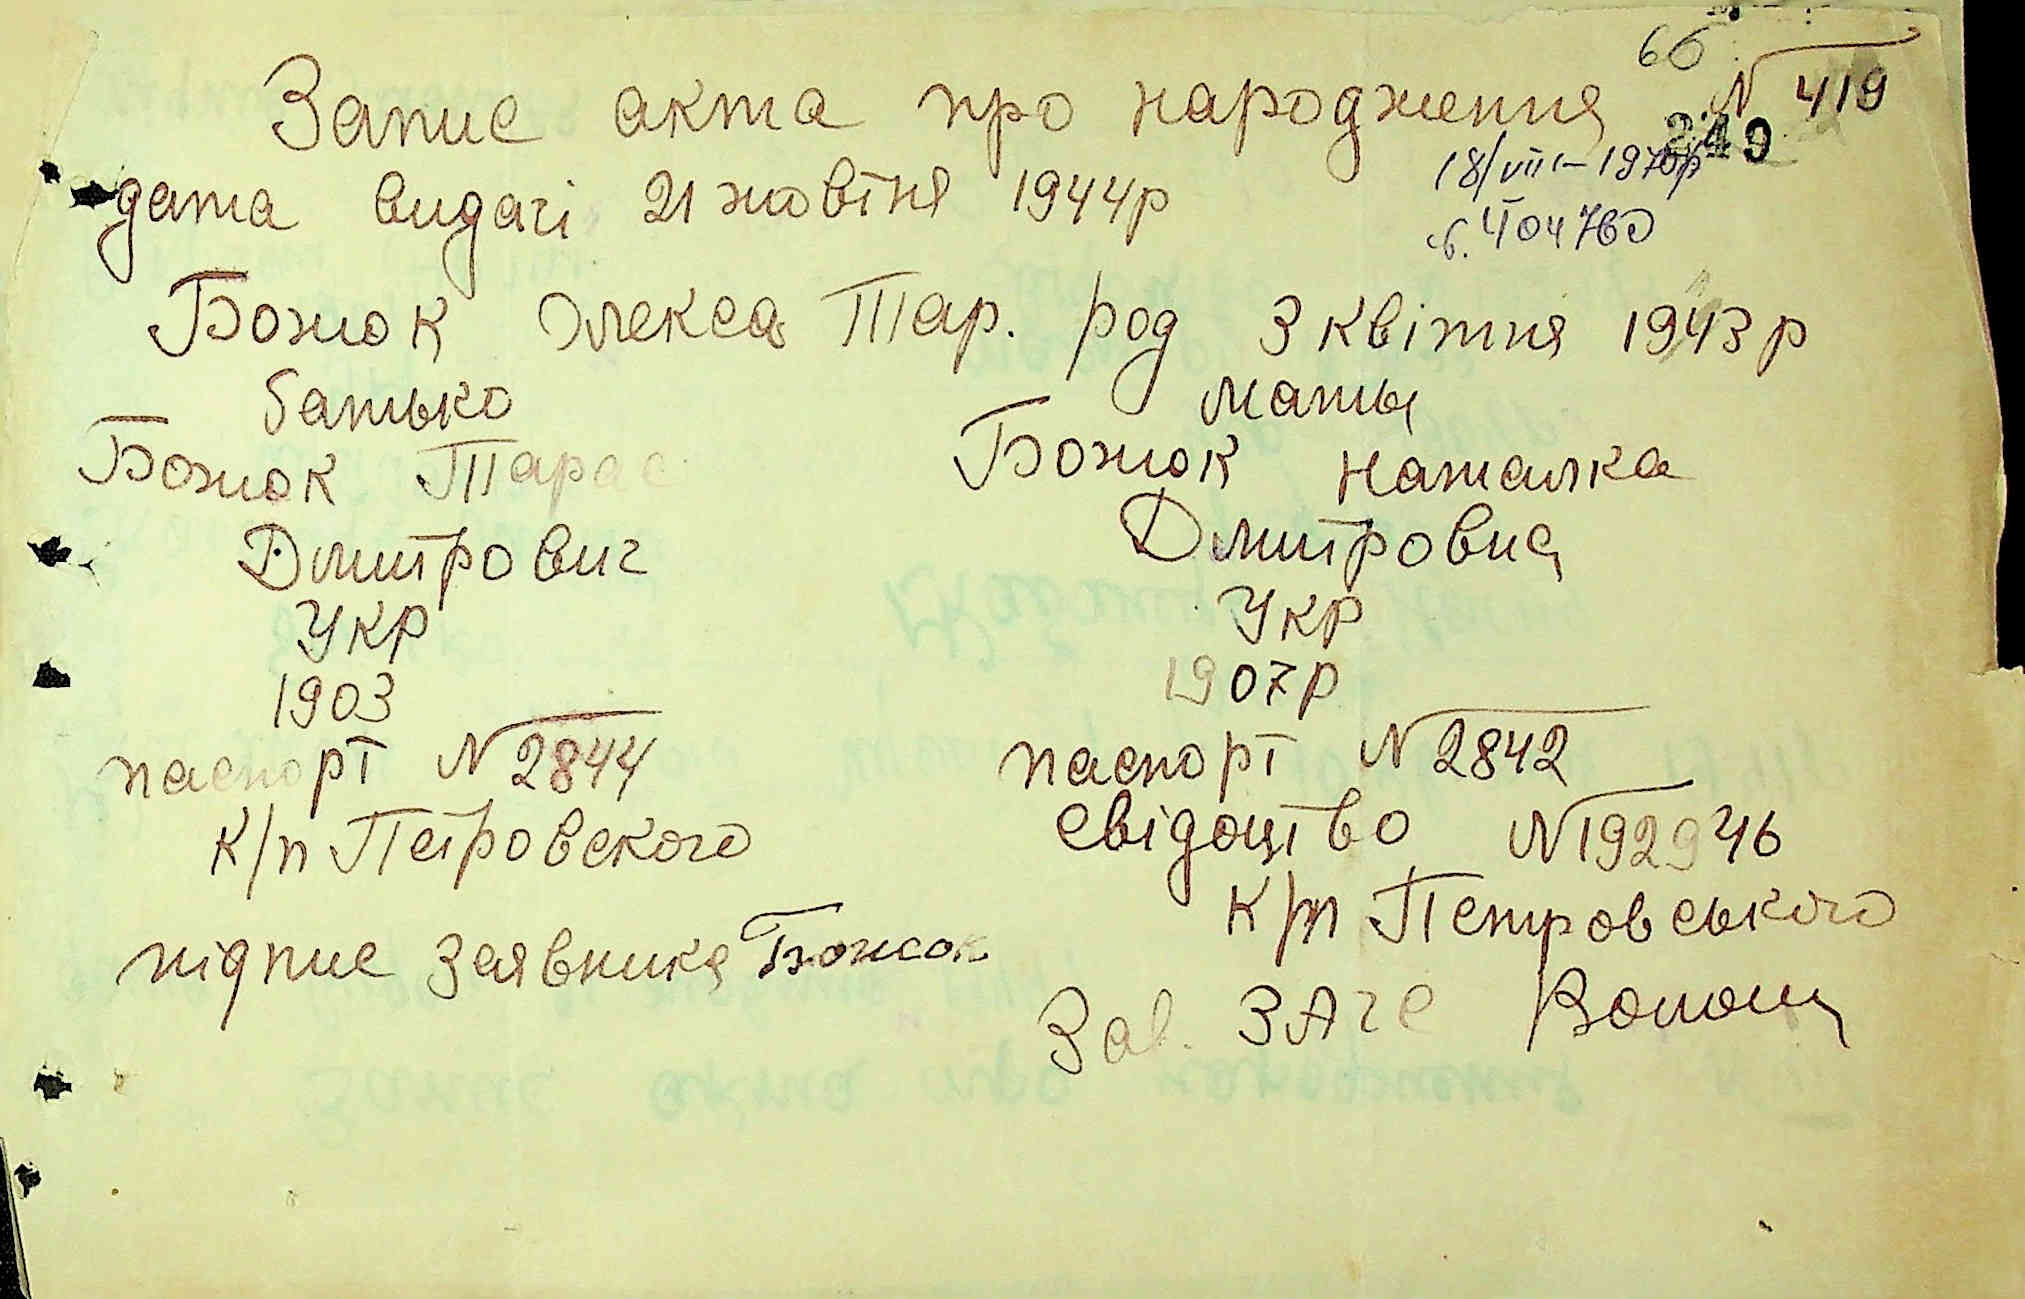 66
Запис акта про народження № 419
249
18/VIII-1970р
дата видачі 21 жовтня 1944р
Божок Олекса Тар. род 3 квітня 1943р
батько мати
Божок Тарас Божок Наталка
Дмитрович Дмитровна
Укр Укр
1903 1907р
паспорт № 2844 паспорт № 2842
к/п Петровского свідоцтво № 192946
к/т Петровського
підпис заявника Божок
Зав. ЗАГС